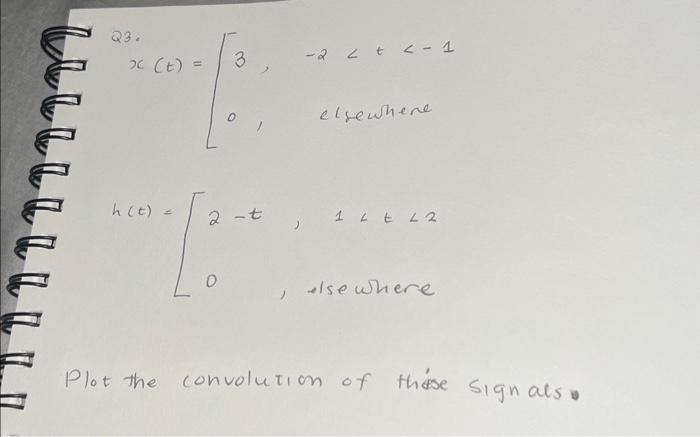 Q3.
x(t) = [ 3, -2 < t < -1
0, elsewhere
h(t) = [ 2-t, 1 < t < 2
0, elsewhere
Plot the convolution of these signals.